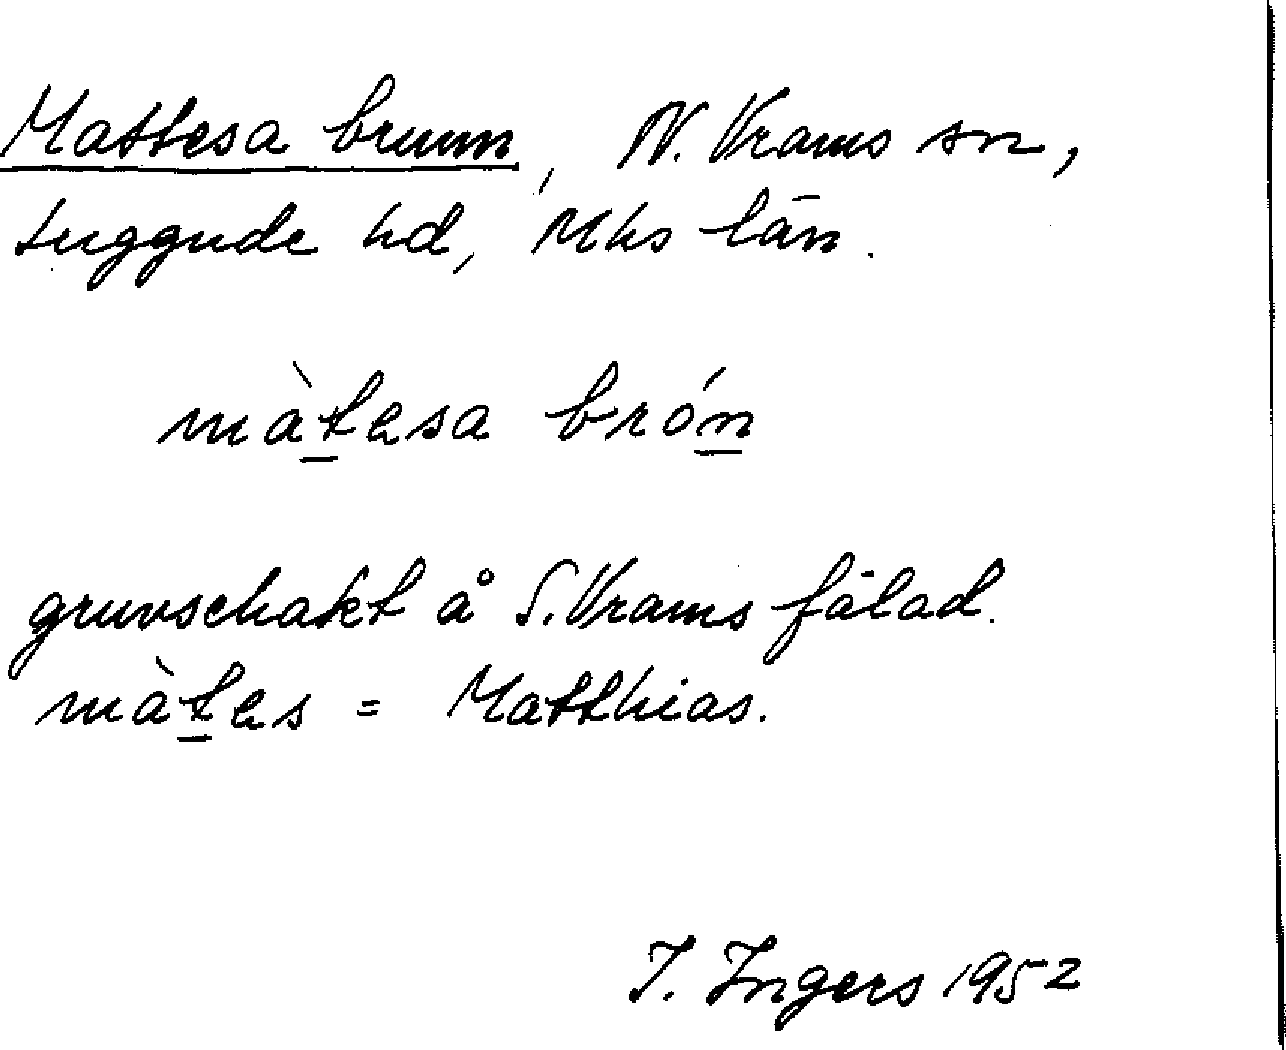 Mattesa brunn, N. Vrams sn,
Luggude hd, Mhs län.
màtesa brón
gruvschakt å S. Vrams fälad.
màtes = Matthias.
I. Ingers 1952